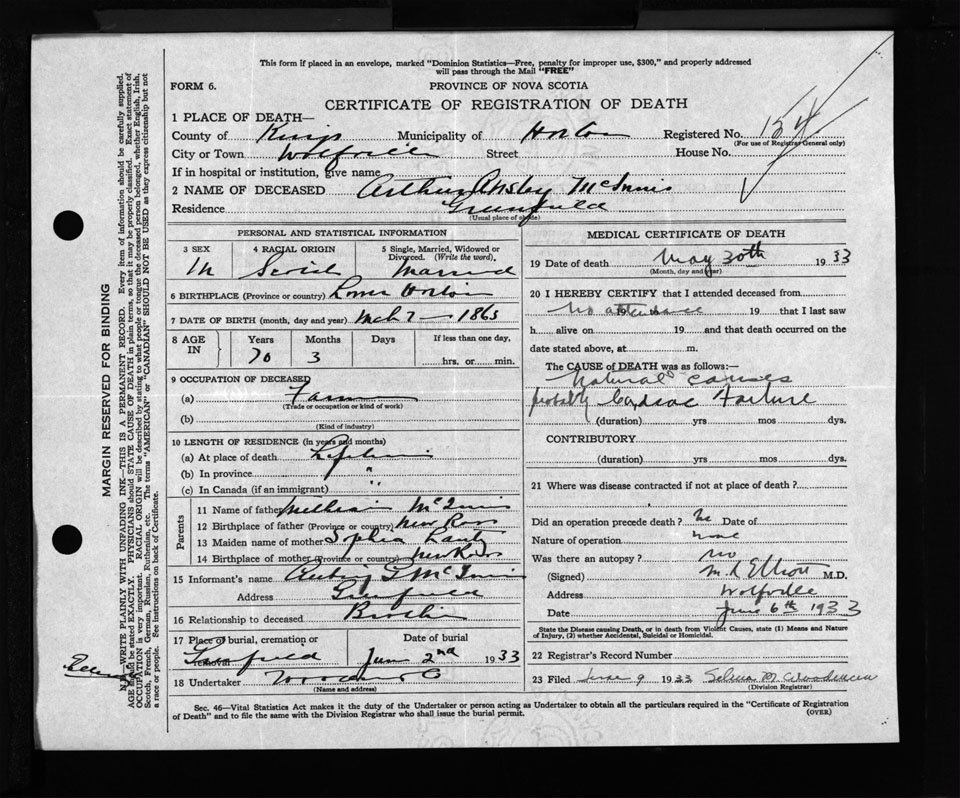 This form if placed in an envelope, marked "Dominion Statistics—Free, penalty for improper use, $300," and properly addressed
will pass through the Mail "FREE"
FORM 6.
PROVINCE OF NOVA SCOTIA
CERTIFICATE OF REGISTRATION OF DEATH
1 PLACE OF DEATH—
County of Kings Municipality of Horton Registered No. 154
(For use of Registrar General only)
City or Town Wolfville Street House No.
If in hospital or institution, give name
2 NAME OF DECEASED Arthur Ansley McInnis
Residence Greenfield
(Usual place of abode)
PERSONAL AND STATISTICAL INFORMATION
3 SEX 4 RACIAL ORIGIN 5 Single, Married, Widowed or
Divorced. (Write the word).
M Married
6 BIRTHPLACE (Province or country) Lower Horton
7 DATE OF BIRTH (month, day and year) Mch 7 — 1863
8 AGE
IN
Years Months Days If less than one day,
70 3 hrs. or min.
9 OCCUPATION OF DECEASED
(a) Farm
(Trade or occupation or kind of work)
(b)
(Kind of industry)
10 LENGTH OF RESIDENCE (in years and months)
(a) At place of death
(b) In province "
(c) In Canada (if an immigrant) "
Parents
11 Name of father William McInnis
12 Birthplace of father (Province or country) New Ross
13 Maiden name of mother Sophia Lantz
14 Birthplace of mother (Province or country) New Ross
15 Informant's name McInnis
Address Greenfield
16 Relationship to deceased Brother
17 Place of burial, cremation or
removal
Date of burial
Greenfield June 2nd 1933
18 Undertaker
(Name and address)
MEDICAL CERTIFICATE OF DEATH
19 Date of death May 30th 1933
(Month, day and year)
20 I HEREBY CERTIFY that I attended deceased from
No attendance 19 that I last saw
h alive on 19 and that death occurred on the
date stated above, at m.
The CAUSE of DEATH was as follows:—
Natural causes
probably Cardiac Failure
(duration) yrs mos dys.
CONTRIBUTORY
(duration) yrs mos dys.
21 Where was disease contracted if not at place of death?
Did an operation precede death? No Date of
Nature of operation none
Was there an autopsy? No
(Signed) M.R. Elliott M.D.
Address Wolfville
Date June 6th 1933
State the Disease causing Death, or in death from Violent Causes, state (1) Means and Nature
of Injury, (2) whether Accidental, Suicidal or Homicidal.
22 Registrar's Record Number
23 Filed June 9 1933 Selina M.
(Division Registrar)
Sec. 46—Vital Statistics Act makes it the duty of the Undertaker or person acting as Undertaker to obtain all the particulars required in the "Certificate of Registration
of Death" and to file the same with the Division Registrar who shall issue the burial permit.
(OVER)
MARGIN RESERVED FOR BINDING
N.B.—WRITE PLAINLY WITH UNFADING INK—THIS IS A PERMANENT RECORD. Every item of information should be carefully supplied.
AGE should be stated EXACTLY. PHYSICIANS should STATE CAUSE OF DEATH in plain terms, so that it may be properly classified. Exact statement of
OCCUPATION is very important. RACIAL ORIGIN will be described by stating to what people or tongue the deceased person belonged, whether English, Irish,
Scotch, French, German, Russian, Ruthenian, etc. The terms "AMERICAN" or "CANADIAN" SHOULD NOT BE USED as they express citizenship but not
a race or people. See instructions on back of Certificate.